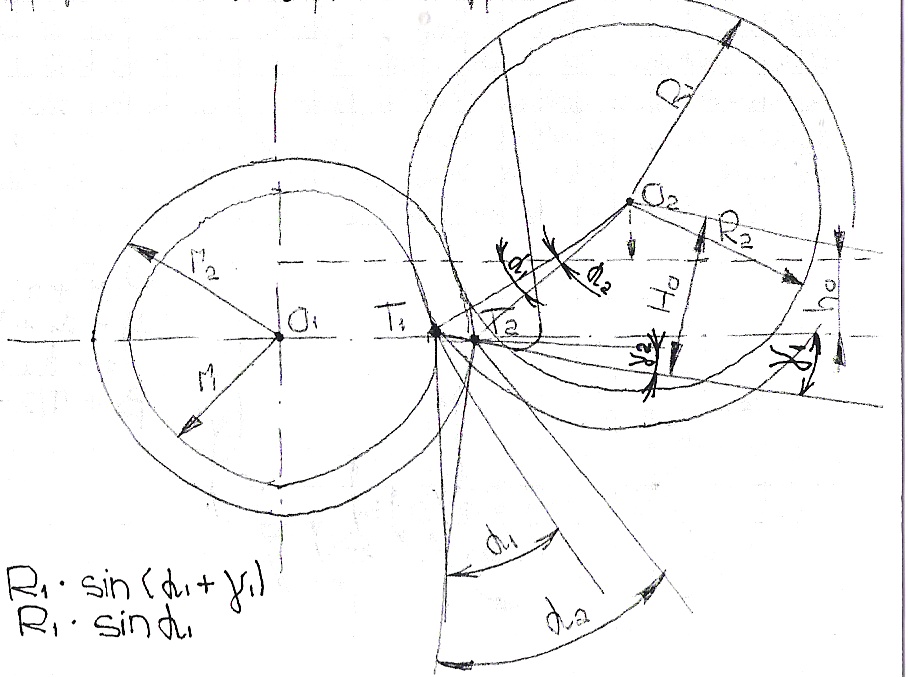 R₁
O₂
R₂
r₂
α₁
α₂
H₀
h₀
O₁
T₁
T₂
γ₂
γ₁
r₁
α₁
R₁ · sin(α₁ + γ₁)
R₁ · sin α₁
α₂